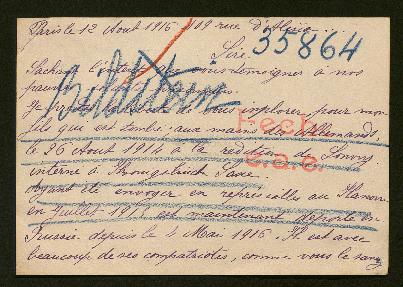 Paris le 12 Aout 1916 119 rue d'Alésia
Sire 35864
Sachant l'intérêt que vous témoigner à nos
pauvres
Je prends de vous implorer pour mon
fils qui est tombé aux mains des Allemands,
le 26 Aout 1914 à la reddition de Longwy
interné à Königsbrück Saxe.
Ayant été envoyer en représailles au Hanovre
en Juillet 191 est maintenant déporté en
Russie depuis le 4 Mai 1916. Il est avec
beaucoup de ses compatriotes, comme vous le savez
Rech.
e.a.e.